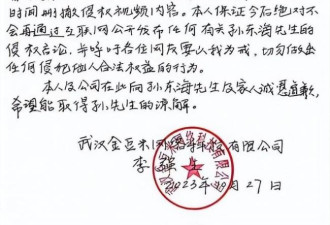 时间删撤侵权视频内容。本人保证今后绝对不
会再通过互联网公开发布任何有关孙东海先生的
侵权言论，并呼吁各位网友要以我为戒，切勿做出
任何侵犯他人合法权益的行为。
本人及公司在此向孙东海先生及家人诚恳道歉，
希望能取得孙先生的谅解。
武汉金豆米网络科技有限公司
李强
2023年10月27日